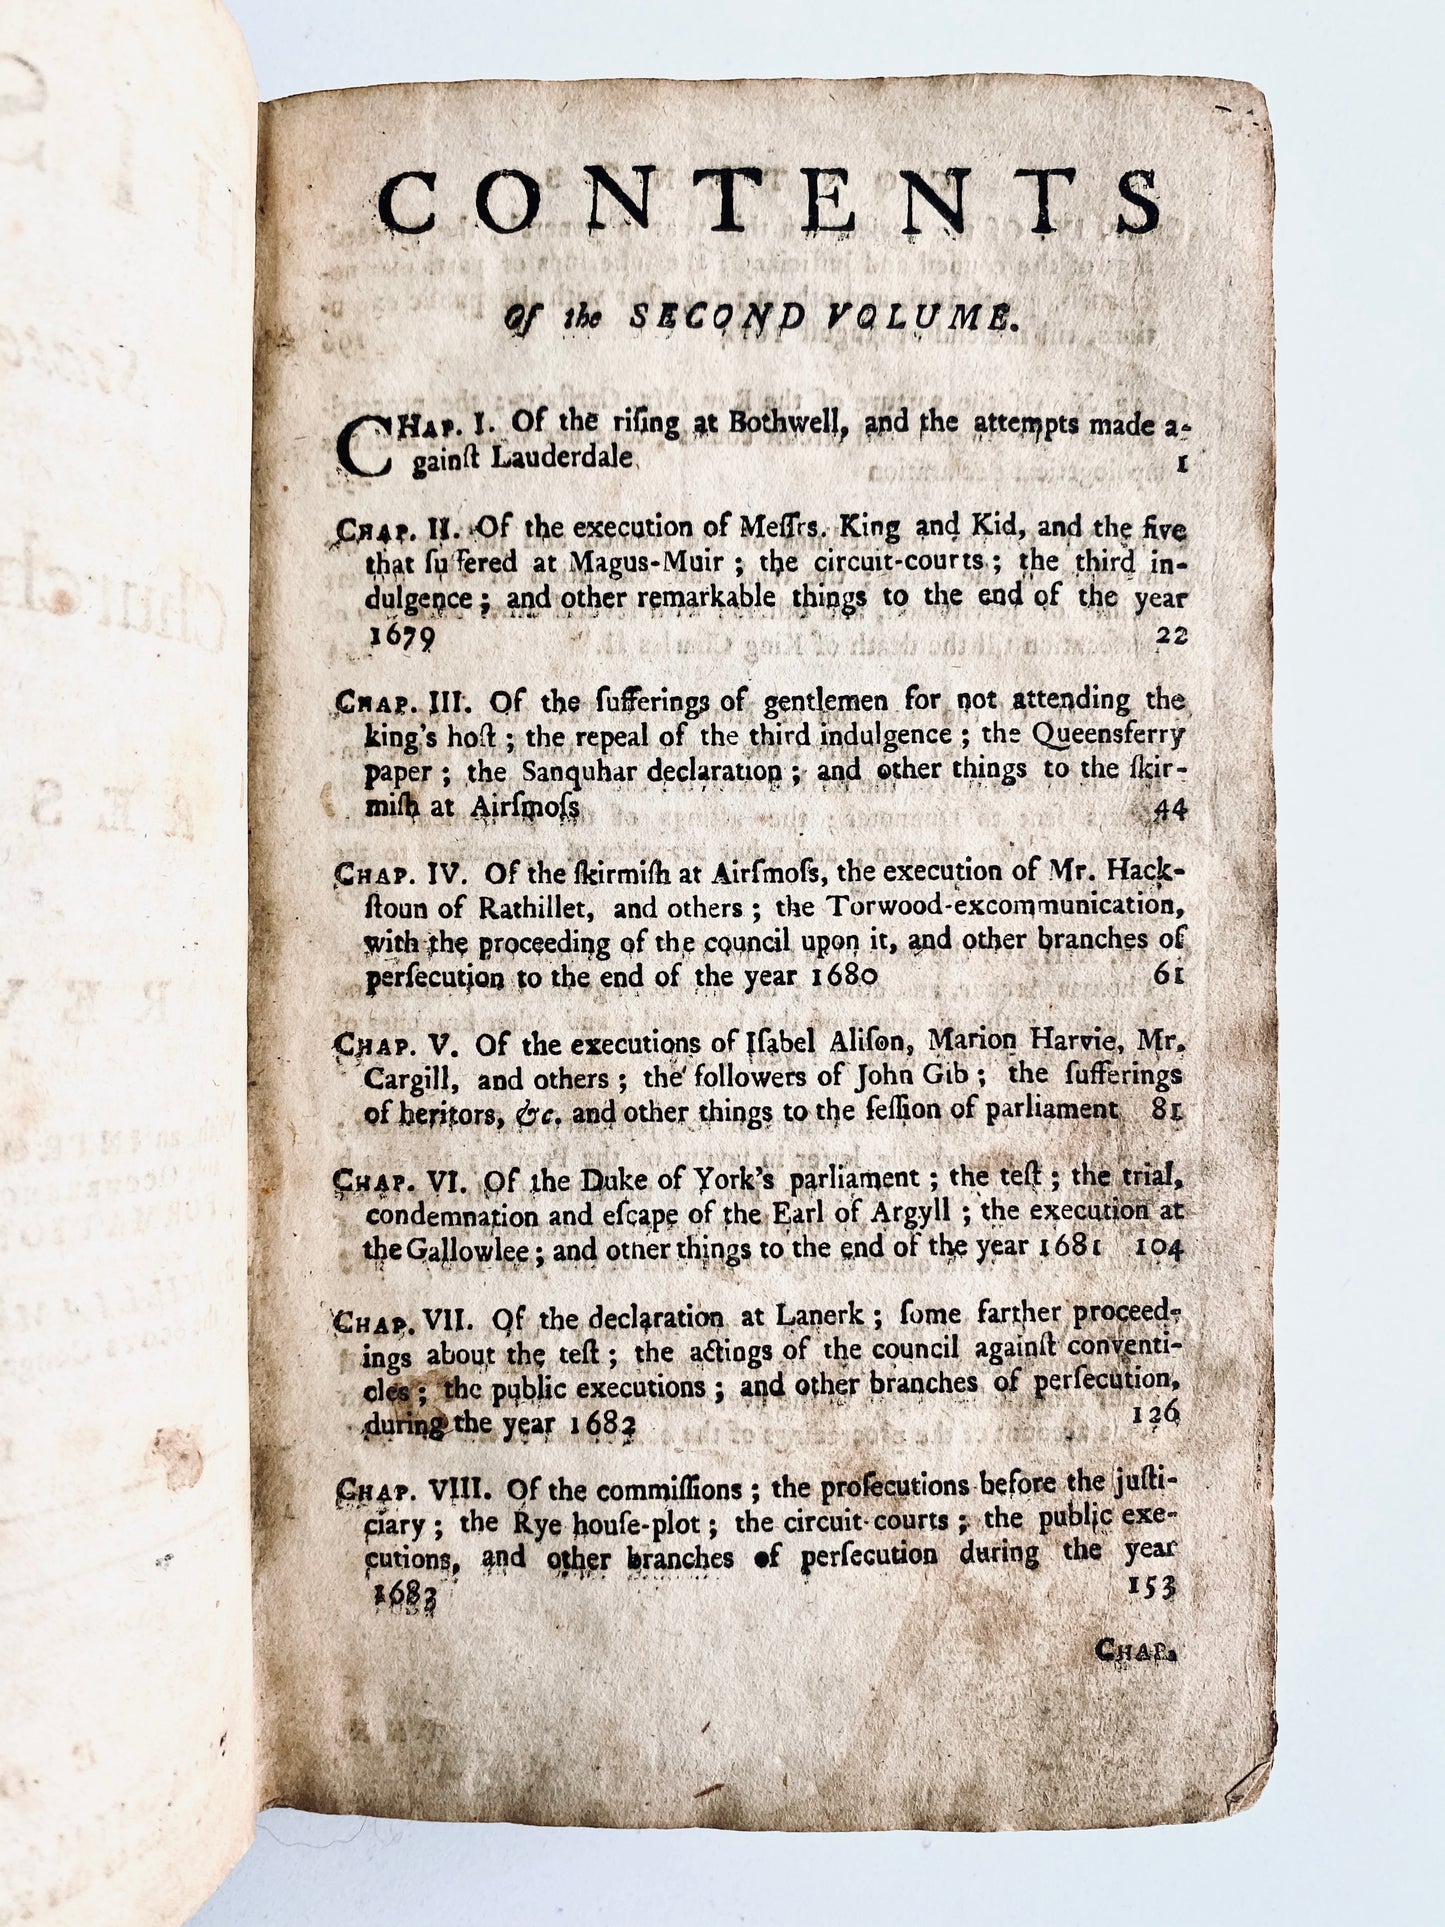 CONTENTS
Of the SECOND VOLUME.
CHAP. I. Of the riſing at Bothwell, and the attempts made a-
gainſt Lauderdale 1
CHAP. II. Of the execution of Meſſrs. King and Kid, and the five
that ſuffered at Magus-Muir ; the circuit-courts ; the third in-
dulgence ; and other remarkable things to the end of the year
1679 22
CHAP. III. Of the ſufferings of gentlemen for not attending the
king's hoſt ; the repeal of the third indulgence ; the Queensferry
paper ; the Sanquhar declaration ; and other things to the ſkir-
miſh at Airſmoſs 44
CHAP. IV. Of the ſkirmiſh at Airſmoſs, the execution of Mr. Hack-
ſtoun of Rathillet, and others ; the Torwood-excommunication,
with the proceeding of the council upon it, and other branches of
perſecution to the end of the year 1680 61
CHAP. V. Of the executions of Iſabel Aliſon, Marion Harvie, Mr.
Cargill, and others ; the followers of John Gib ; the ſufferings
of heritors, &c. and other things to the ſeſſion of parliament 81
CHAP. VI. Of the Duke of York's parliament ; the teſt ; the trial,
condemnation and eſcape of the Earl of Argyll ; the execution at
the Gallowlee ; and other things to the end of the year 1681 104
CHAP. VII. Of the declaration at Lanerk ; ſome farther proceed-
ings about the teſt ; the actings of the council againſt conventi-
cles ; the public executions ; and other branches of perſecution,
during the year 1682 126
CHAP. VIII. Of the commiſſions ; the proſecutions before the juſti-
ciary ; the Rye houſe-plot ; the circuit-courts ; the public exe-
cutions, and other branches of perſecution during the year
1683 153
CHAP.